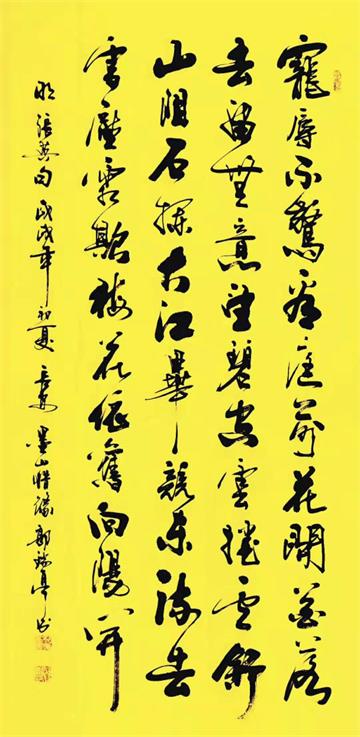 寵辱不驚看庭前花開花落
去留無意望碧空雲捲雲舒
山阻石攔大江畢競東流去
雪壓霜欺梅花依舊向陽開
明張英句戊戌年初夏墨山郭亭書